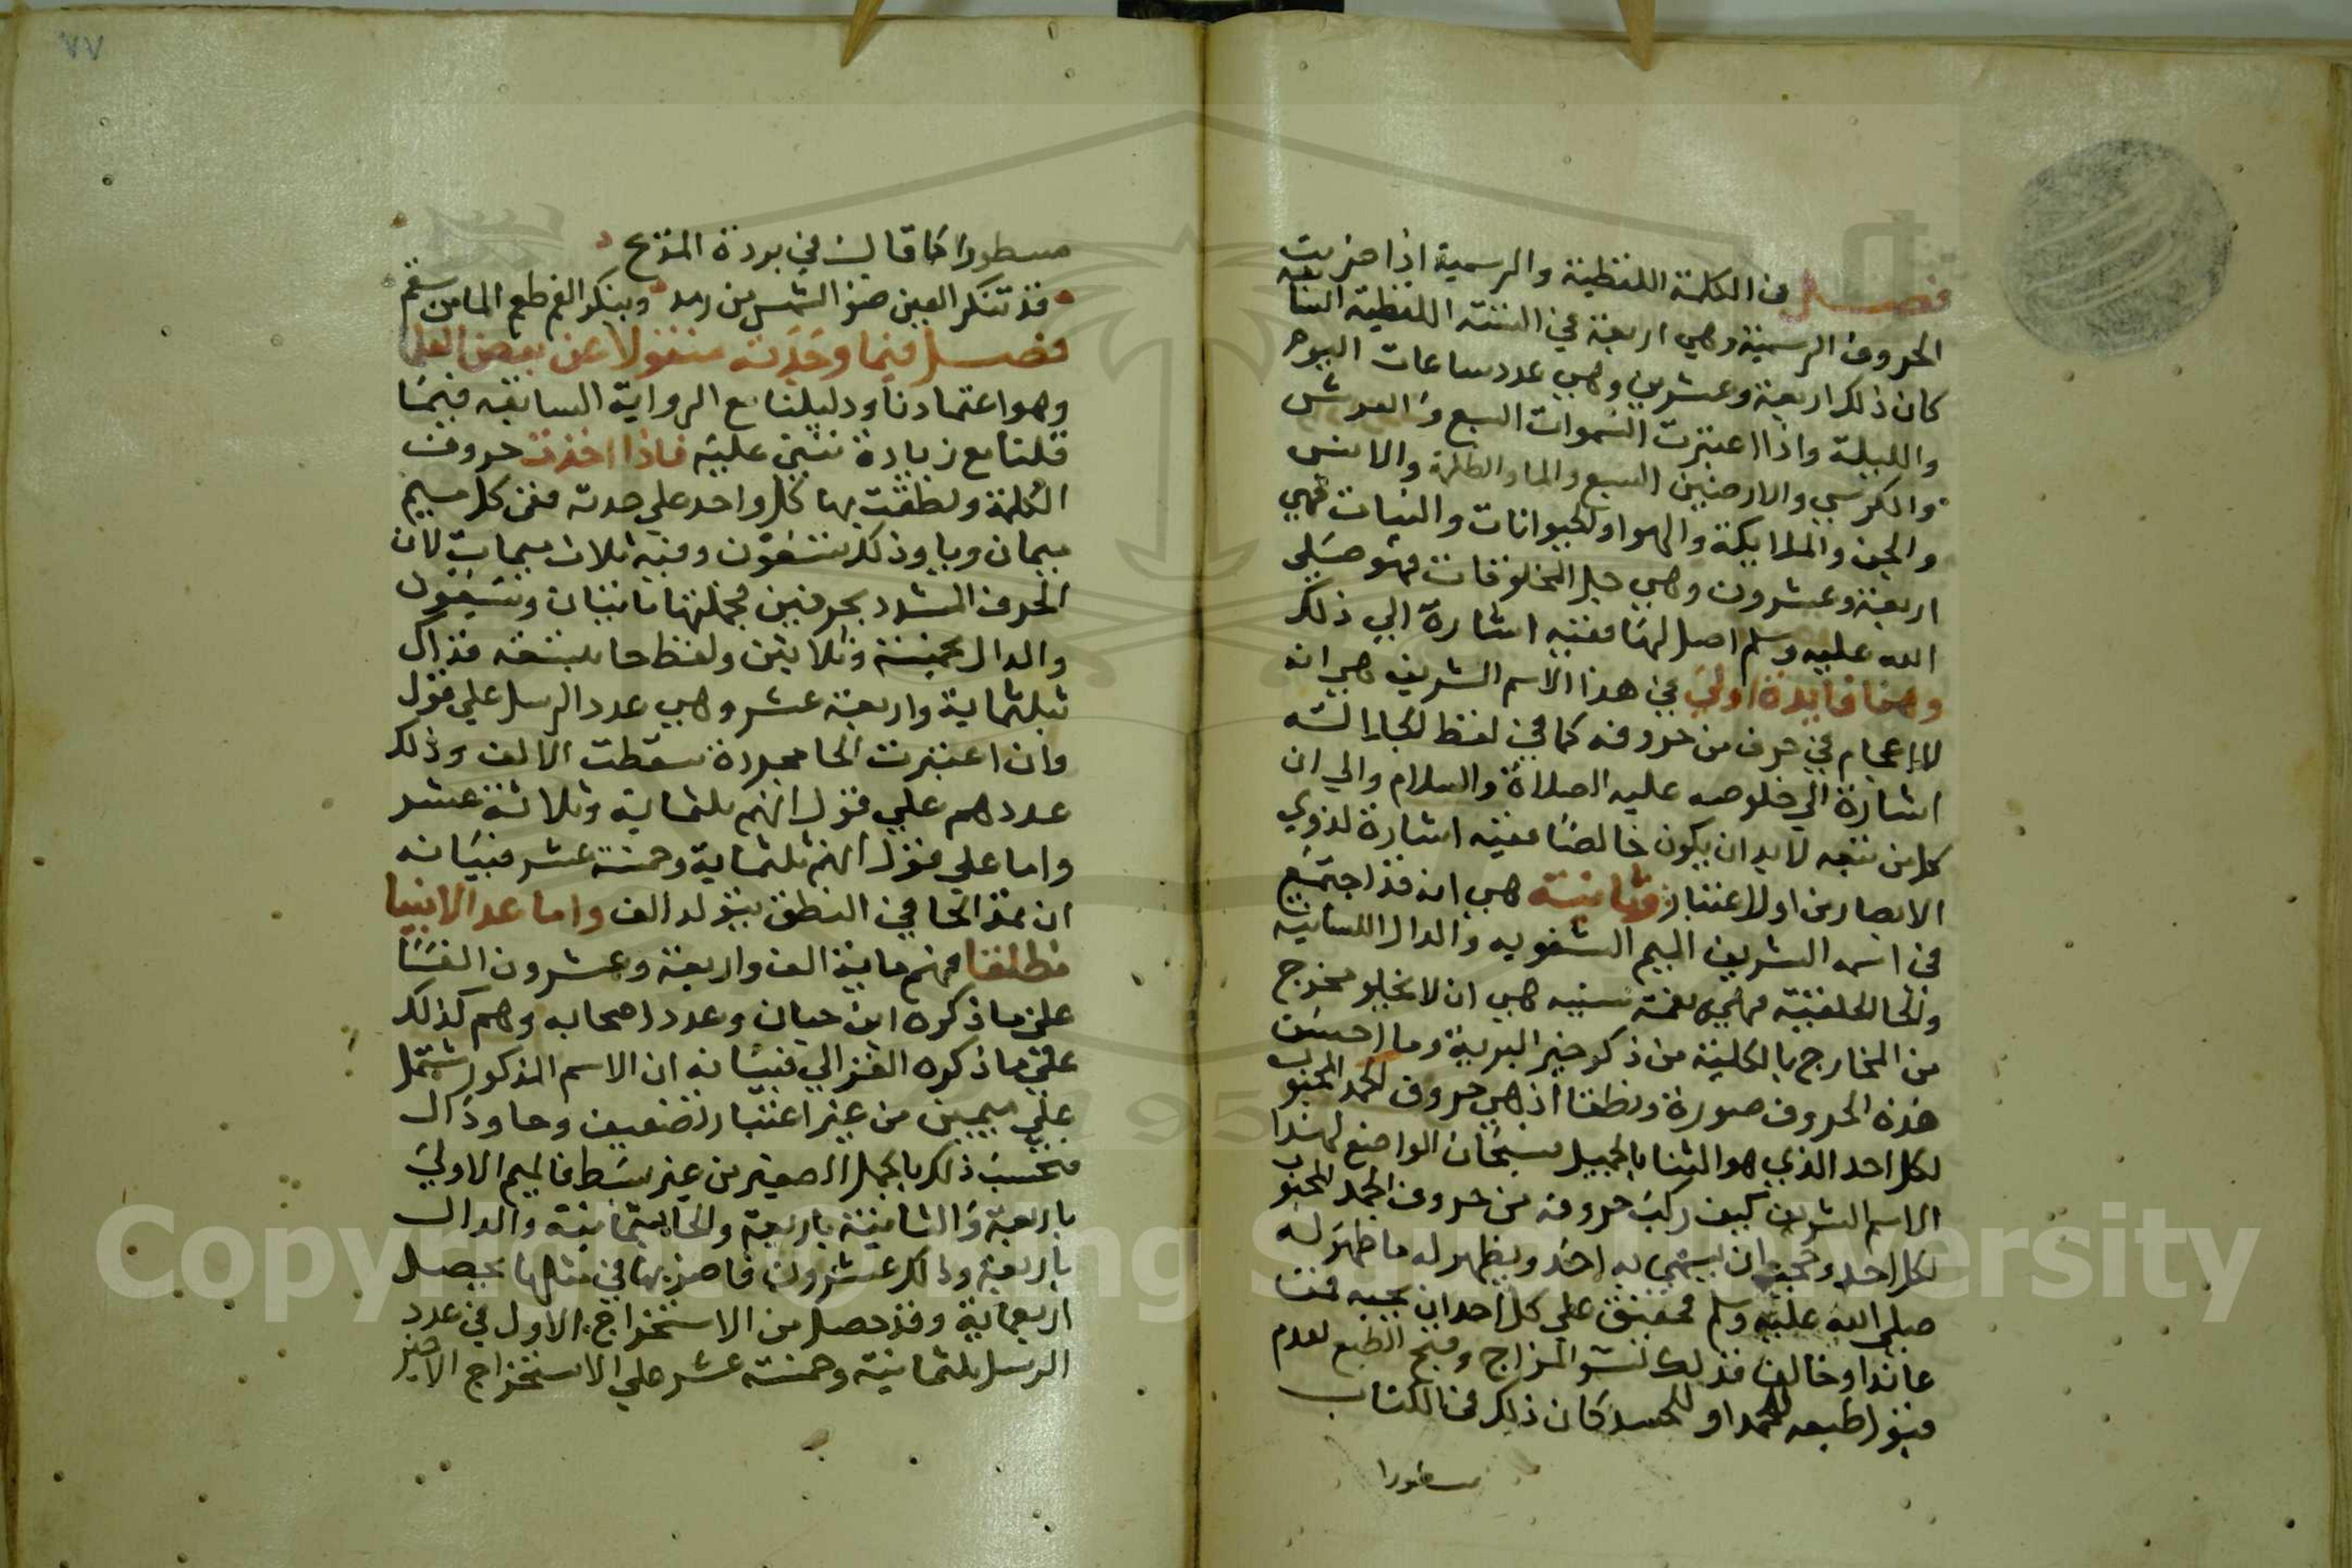 فصل في الكلمة اللفظية والرسمية اذا ضربت
الحروف الرسمية وهي اربعة في الستة اللفظية السابقة
كان ذلك اربعة وعشرين وهي عدد ساعات اليوم
والليلة واذا اعتبرت السموات السبع والعرش
والكرسي والارضين السبع والما والظلمة والانس
والجن والملايكة والهوا والحيوانات والنبات فهي
اربعة وعشرون وهي جل المخلوقات فهو صلى
الله عليه وسلم اصل لها ففيه اشارة الي ذلك
وهنا فايدة اولي في هذا الاسم الشريف هي انه
لا اعجام في حرف من حروفه كما في لفظ الجلالة
اشارة الي خلوصه عليه الصلاة والسلام والي ان
كل من تبعه لا بد ان يكون خالصا ففيه اشارة لذوي
الابصار من اولا عتبار وثانية هي انه قد اجتمع
في اسمه الشريف الميم الشفوية والدال اللسانية
والحا الحلقية فهي نعمة سنيه هي ان لا يخلو مخرج
من المخارج بالكلية من ذكر خير البرية وما احسن
هذه الحروف صورة ونطقا اذ هي حروف الحمد المحبوب
لكل احد الذي هو الثنا بالجميل سبحان الواضع لهذا
الاسم الشريف كيف ركب حروفه من حروف الحمد المحبوب
لكل احد ان يسمي به احد ويظهر له ما ظهر له
صلى الله عليه وسلم فحقيق علي كل احد ان يحبه فمن
عاندا وخالف فذلك المزاج وقبح الطبع لعدم
طبعه للحمد او للحسد كان ذلك في الكتاب
مسطورا
٧٧
مسطورا كما قال في بردة المديح
قد تنكر العين ضو الشمس من رمد وينكر الفم طعم الما من سقم
فصل فيما وجدته منقولا عن بعض العلما
وهو اعتمادنا ودليلنا مع الرواية السابقه فيما
قلنا مع زيادة تنبني عليه فاذا اخذت حروف
الكلمة ونطقت بها كل واحد علي حدته فمن كل ميم
ميمان ويا وذلك تسعون وفيه ثلاث ميمات لان
الحرف المشدد بحرفين فجملتها مايتان وسبعون
والدال بخمسة وثلاثين ولفظ حا بتسعة فذلك
ثلثماية واربعة عشر وهي عدد الرسل علي قول
وان اعتبرت الحا مجردة سقطت الالف وذلك
عددهم علي قول انهم ثلثماية وثلاثة عشر
واما علي قول انهم ثلثماية وخمسة عشر فبيانه
ان تمد الحا في النطق يتولد الف واما عد الانبيا
مطلقا فهم ماية الف واربعة وعشرون الفا
علي ما ذكره ابن حبان وعدد اصحابه وهم كذلك
علي ما ذكره الغزالي فبيانه ان الاسم المذكور يشتمل
علي ميمين من غير اعتبار تضعيف وحا ودال
فتحسب ذلك بالجمل الصغير من غير بسط فالميم الاولي
باربعة والثانية باربعة والحا بثمانية والدال
باربعة وذلك عشرون فاضربها في مثلها يحصل
اربعماية وقد حصل من الاستخراج الاول في عدد
الرسل ثلثماية وخمسة عشر علي الاستخراج الاخير
Copyright © King Saud University